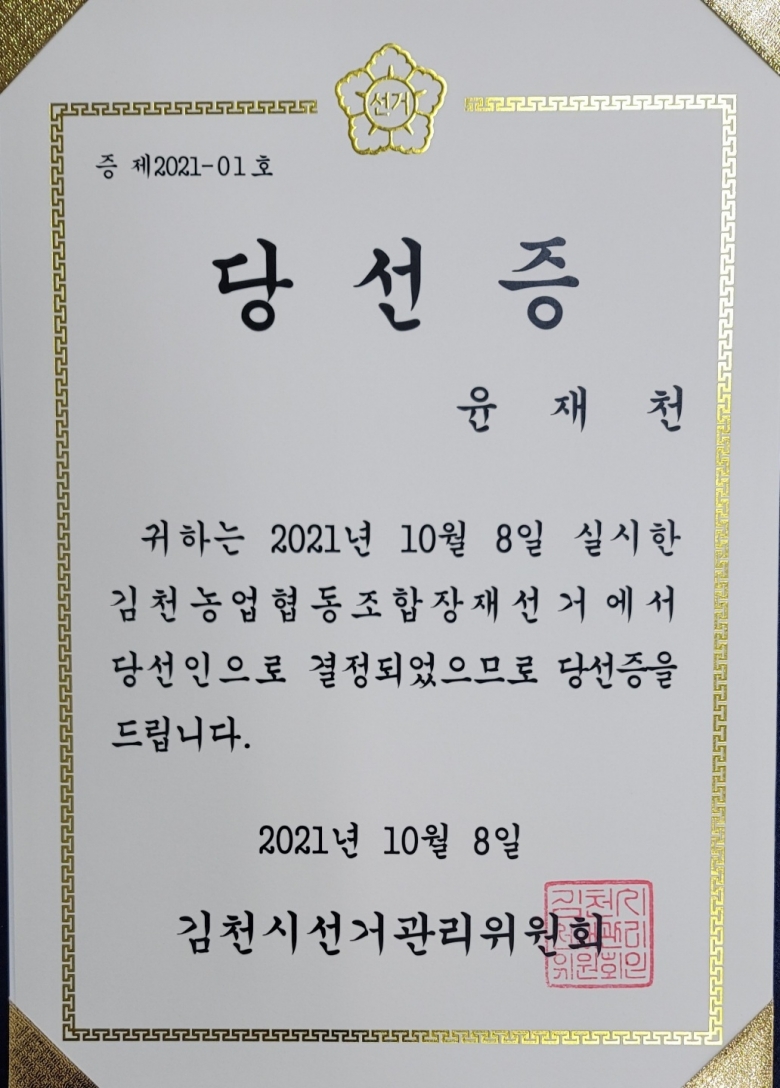 선거
증 제2021-01호
당선증
윤재천
귀하는 2021년 10월 8일 실시한
김천농업협동조합장재선거에서
당선인으로 결정되었으므로 당선증을
드립니다.
2021년 10월 8일
김천시선거관리위원회
김천시
선거관리
위원회인